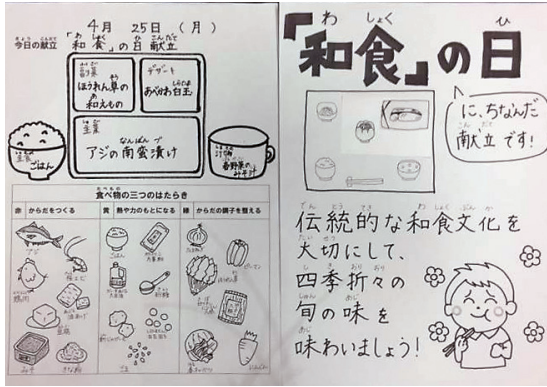 4月 25日 (月)
今日の献立 「和食」の日 献立
副菜
ほうれん草の
和えもの
デザート
あべかわ白玉
主菜
アジの南蛮漬け
主食
ごはん
汁物
春野菜の
みそ汁
食べ物の三つのはたらき
赤 からだをつくる
黄 熱や力のもとになる
緑 からだの調子を整える
アジ
鶏肉
油あげ
豆腐
みそ
きな粉
ごはん
ごま
ピーマン
にんじん
「和食」の日
に、ちなんだ
献立です!
伝統的な和食文化を
大切にして、
四季折々の
旬の味を
味わいましょう!